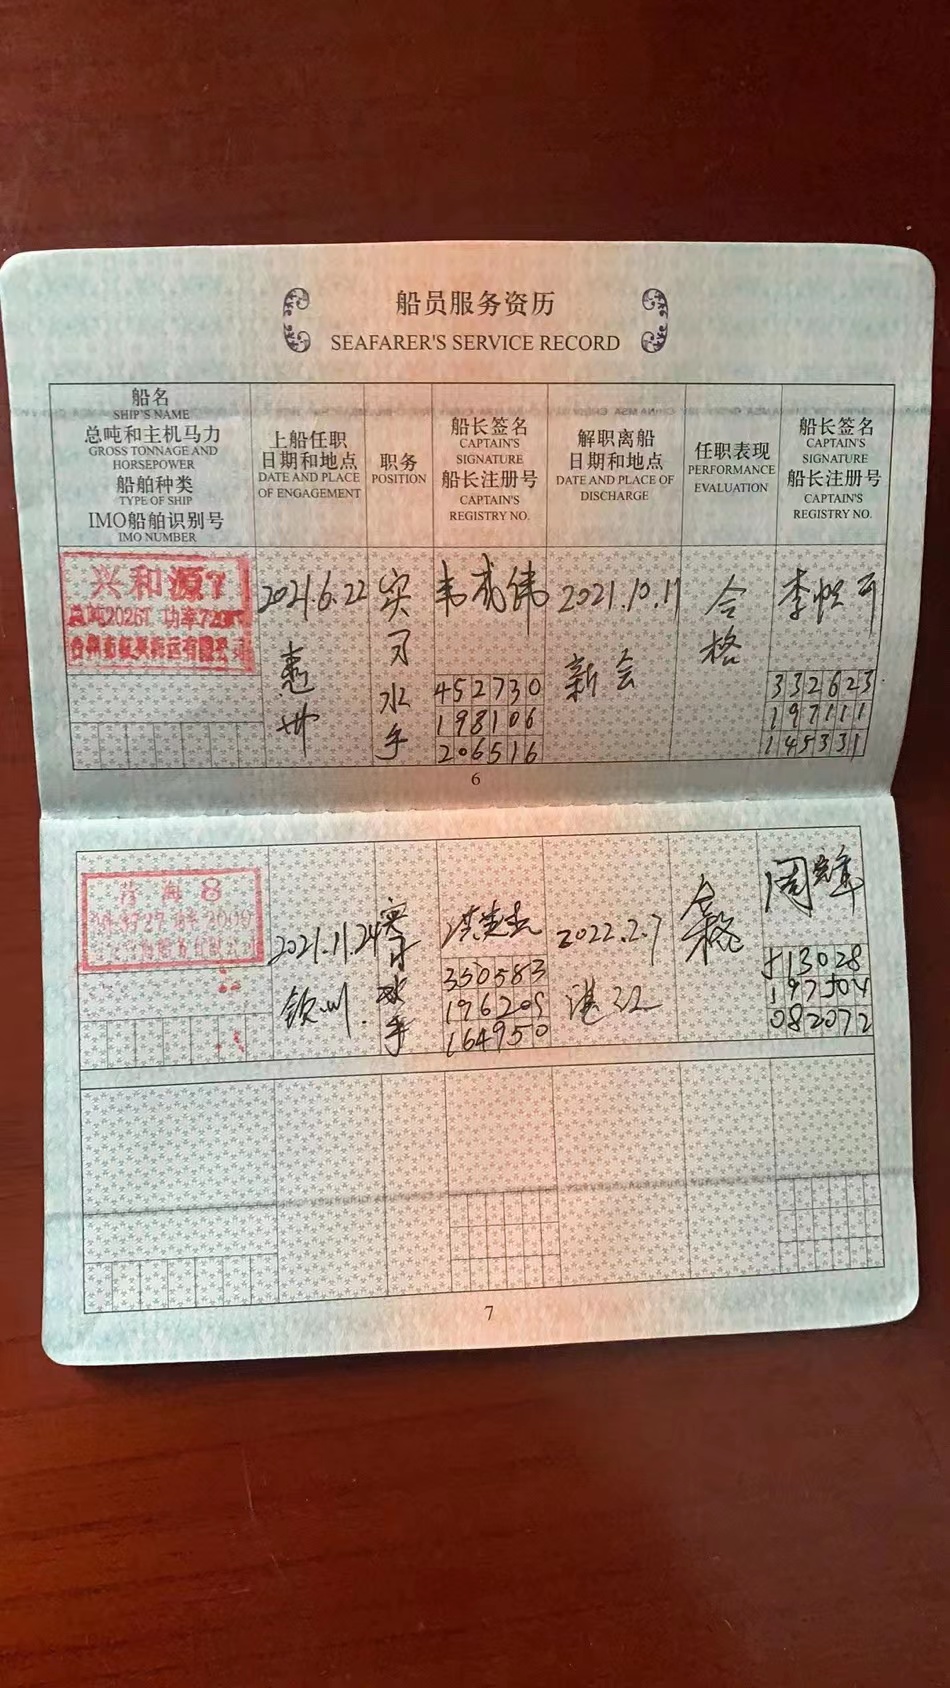 船员服务资历
SEAFARER'S SERVICE RECORD
船名
SHIP'S NAME
总吨和主机马力
GROSS TONNAGE AND
HORSEPOWER
船舶种类
TYPE OF SHIP
IMO船舶识别号
IMO NUMBER
上船任职
日期和地点
DATE AND PLACE
OF ENGAGEMENT
职务
POSITION
船长签名
CAPTAIN'S
SIGNATURE
船长注册号
CAPTAIN'S
REGISTRY NO.
解职离船
日期和地点
DATE AND PLACE OF
DISCHARGE
任职表现
PERFORMANCE
EVALUATION
船长签名
CAPTAIN'S
SIGNATURE
船长注册号
CAPTAIN'S
REGISTRY NO.
兴和源7
总吨2026T 功率720
海运有限公司
2021.6.22
惠
州
实
习
水
手
韦成伟
452730
198106
206516
2021.10.11
新会
合
格
李
332623
197111
145331
6
8
2021.11.24
钦州
实
习
水
手
洪
350583
196209
164950
2022.2.7
湛江
合
格
周
113028
197504
082072
7